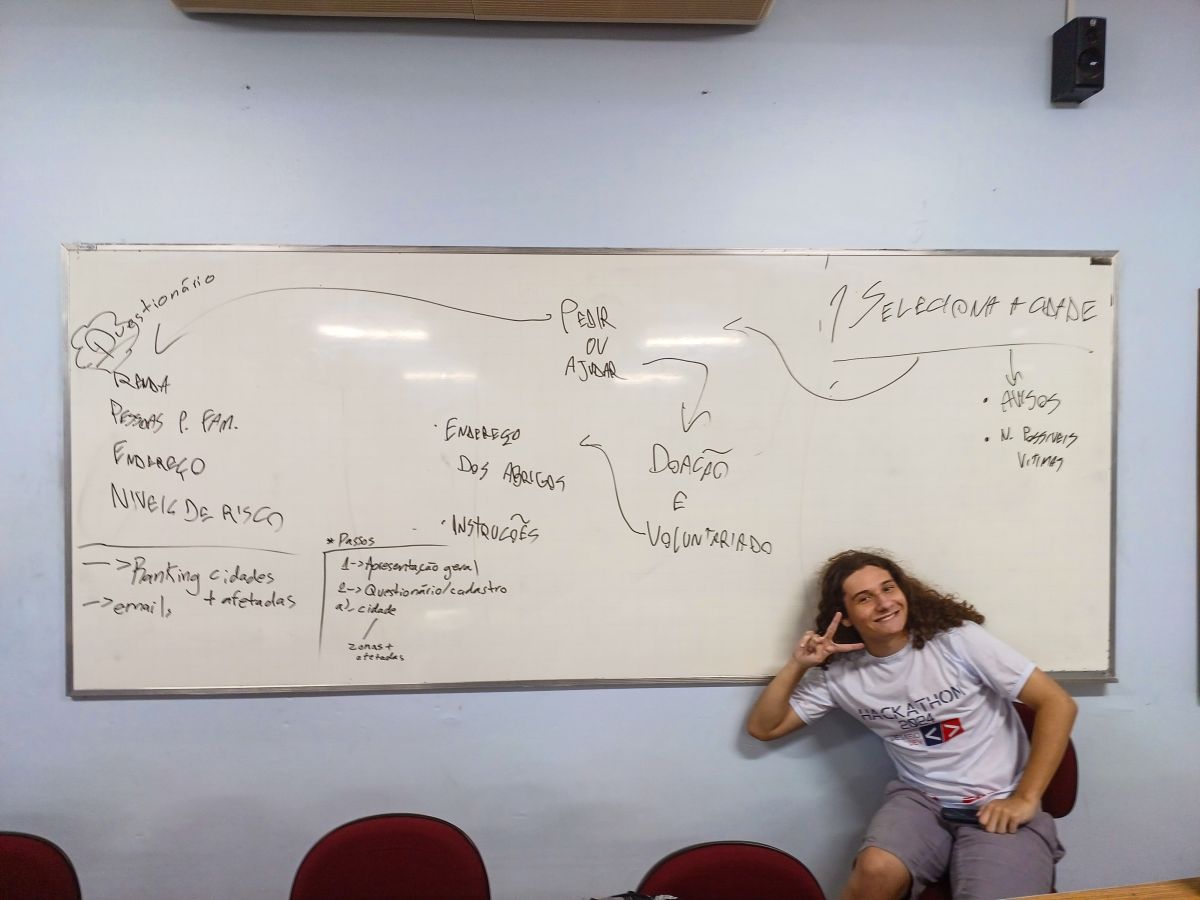 Questionário
RENDA
PESSOAS P. FAM.
ENDEREÇO
NIVEIS DE RISCO
-> Ranking cidades
+ afetadas
-> emails
PEDIR
OU
AJUDAR
• ENDEREÇO
DOS ABRIGOS
• INSTRUÇÕES
* Passos
1-> Apresentação geral
2-> Questionário/cadastro
a). cidade
zonas +
afetadas
DOAÇÃO
E
VOLUNTARIADO
1 SELECIONA A CIDADE
• AVISOS
• N. POSSIVEIS
VITIMAS
HACKATHON
2024